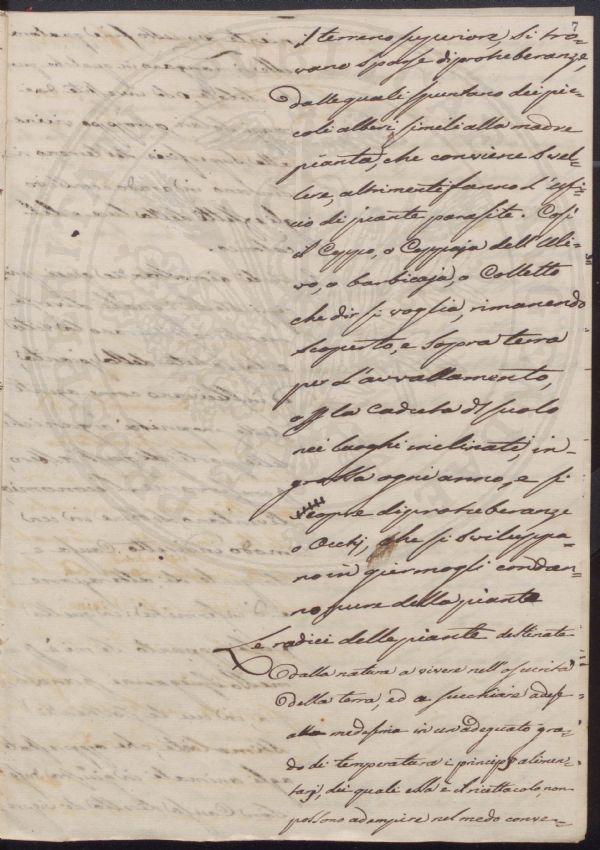 7
il terreno superiore si tro-
vano sparse di protheberanze,
dalle quali spuntano dei pic-
coli alberi simili alla madre
pianta, che conviene svel-
lere, altrimenti fanno l'uffi-
cio di piante parasite. Così
il Ceppo, o Ceppaja dell'Uli-
vo, o barbicaja, o Colletto
che dir si voglia, rimanendo
scoperto, e sopra terra
per l'avvallamento,
o p la caduta di suolo
nei luoghi inclinati in-
grassa ogni anno, e si
copre di protheberanze
o Occhj, che si sviluppa-
no in germogli con dan-
no pure della pianta
Le radici delle piante destinate
dalla natura a vivere nell'oscurità
della terra, ed a succhiare adesse
alla medesima in un adeguato gra-
do di temperatura i principj alimen-
tarj, dei quali essa è il ricettacolo, non
possono adempire nel modo conve-